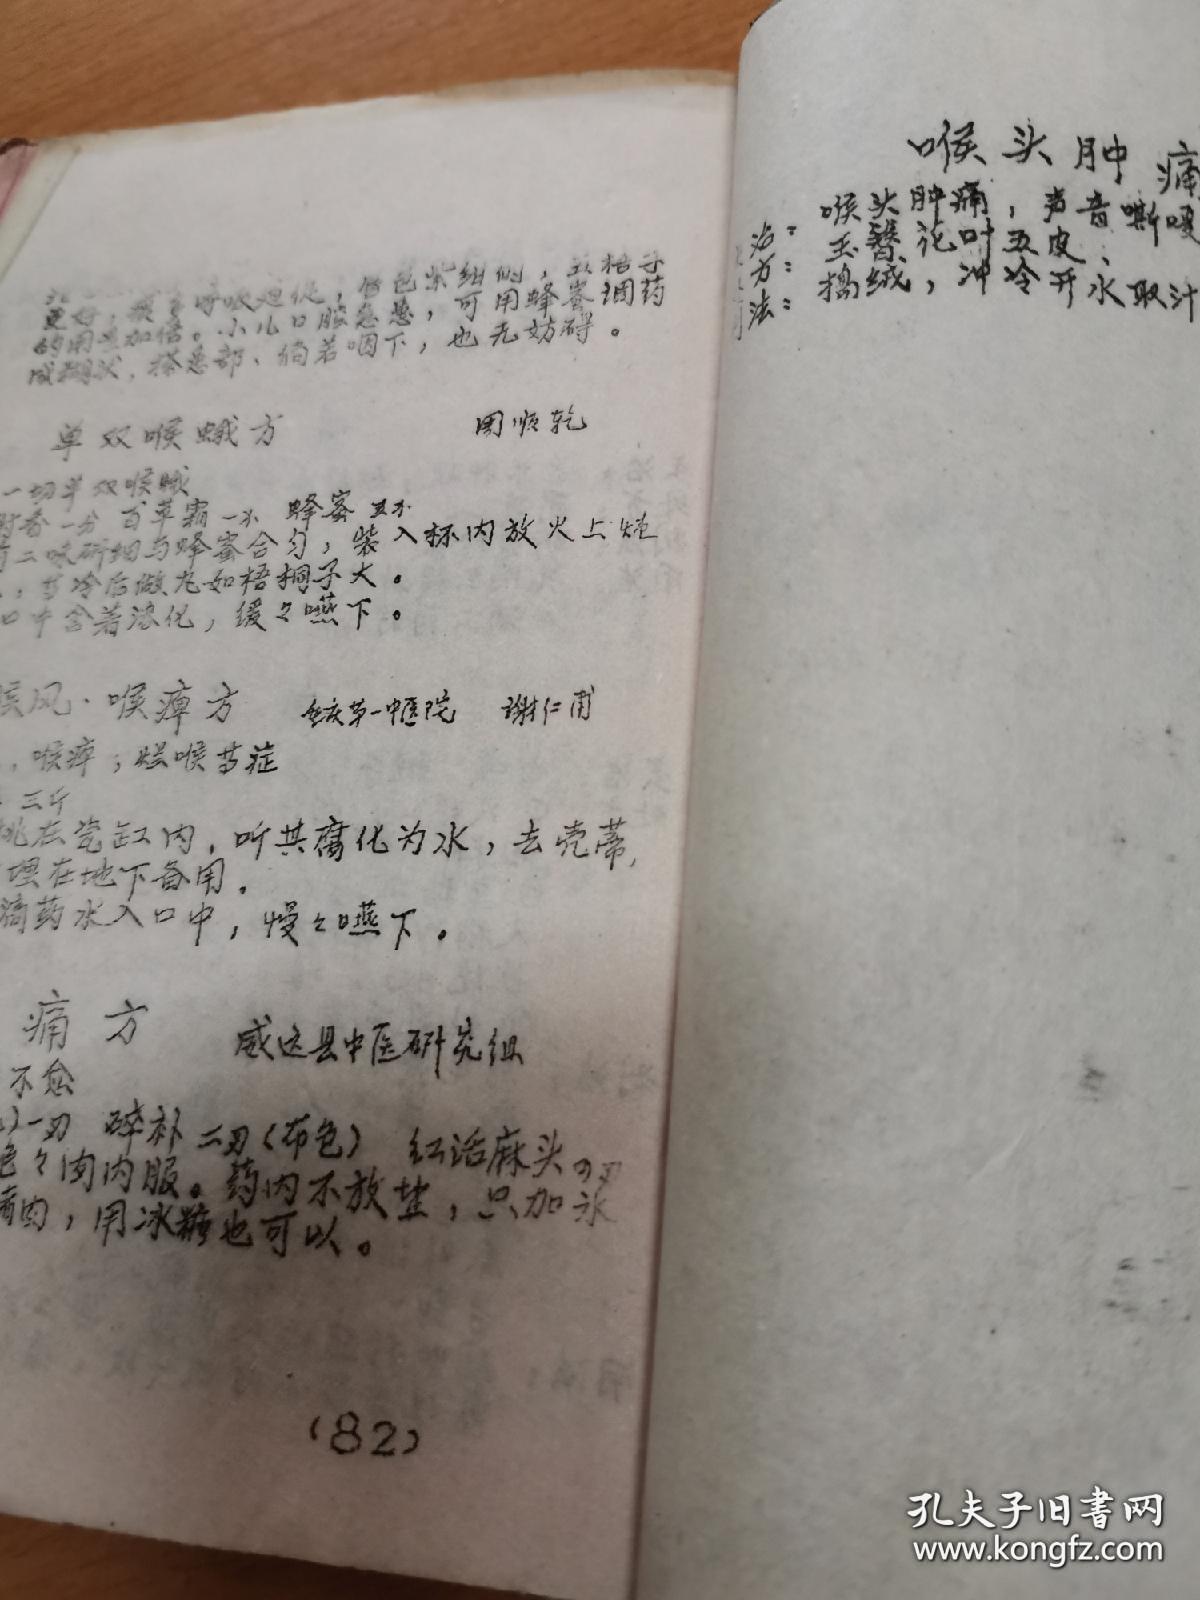 更好，痰多呼吸迫促，唇色紫绀的，五梧子
的用量加倍。小儿口腔急患，可用蜂蜜调药
成糊状，搽患部、倘若咽下，也无妨碍。
单双喉蛾方 周顺乾
一切单双喉蛾
射香一分 百草霜一不 蜂蜜
二味研细与蜂蜜合匀，装入杯内放火上炖
，等冷后做丸如梧桐子大。
口中含着溶化，缓々嚥下。
喉风·喉痺方 重庆第一中医院 谢仁甫
，喉痺；烂喉等症
三斤
在瓷缸内，听其腐化为水，去壳蒂，
埋在地下备用。
滴药水入口中，慢々嚥下。
痛方 威远县中医研究组
不愈
一刃 碎补二刃（布包） 红活麻头
々肉内服。药内不放盐，只加冰
肉，用冰糖也可以。
（82）
喉头肿痛
治：喉头肿痛，声音嘶嗄
方：玉簪花叶五皮；
法：捣绒，冲冷开水取汁
孔夫子旧书网
www.kongfz.com